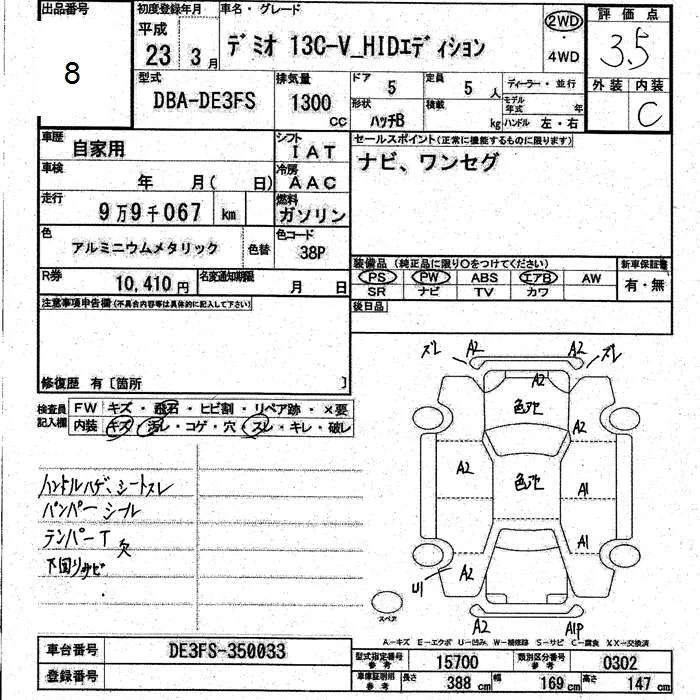 出品番号
8
初度登録年月
平成
23年 3月
車名・グレード
デミオ 13C-V_HIDエディション
2WD
・
4WD
評価点
3.5
外装 内装
C
型式
DBA-DE3FS
排気量
1300
CC
ドア
5
定員
5 人
形状
ハッチB
積載
kg
ディーラー・並行
モデル年式 年
ハンドル 左・右
車歴
自家用
シフト
IAT
車検
年 月( 日)
冷房
AAC
走行
9万9千067 km
燃料
ガソリン
色
アルミニウムメタリック
色替
色コード
38P
R券
10,410円
名変通知期限
月 日
セールスポイント(正常に機能するものに限ります)
ナビ、ワンセグ
装備品 (純正品に限り○をつけてください)
PS PW ABS エアB AW
SR ナビ TV カワ
新車保証書
有・無
後日品
注意事項申告欄(不具合内容等は具体的に記入して下さい)
修復歴 有〔箇所 〕
検査員記入欄
FW キズ・飛石・ヒビ割・リペア跡・×要
内装 キズ・汚レ・コゲ・穴・スレ・キレ・破レ
ハンドルハゲ、シートスレ
バンパーシール
テンパーT欠
下回りサビ
ズレ A2 A2 ズレ
A2
色地
A2
A2
色地
A1
A1
U1 A2
A2 A1P
スペア
A-キズ E-エクボ U-凹み W-補修跡 S-サビ C-腐食 XX-交換済
車台番号
DE3FS-350033
登録番号
型式指定番号 参考
15700
類別区分番号 参考
0302
車庫証明用 参考
長さ 388 cm 幅 169 cm 高さ 147 cm